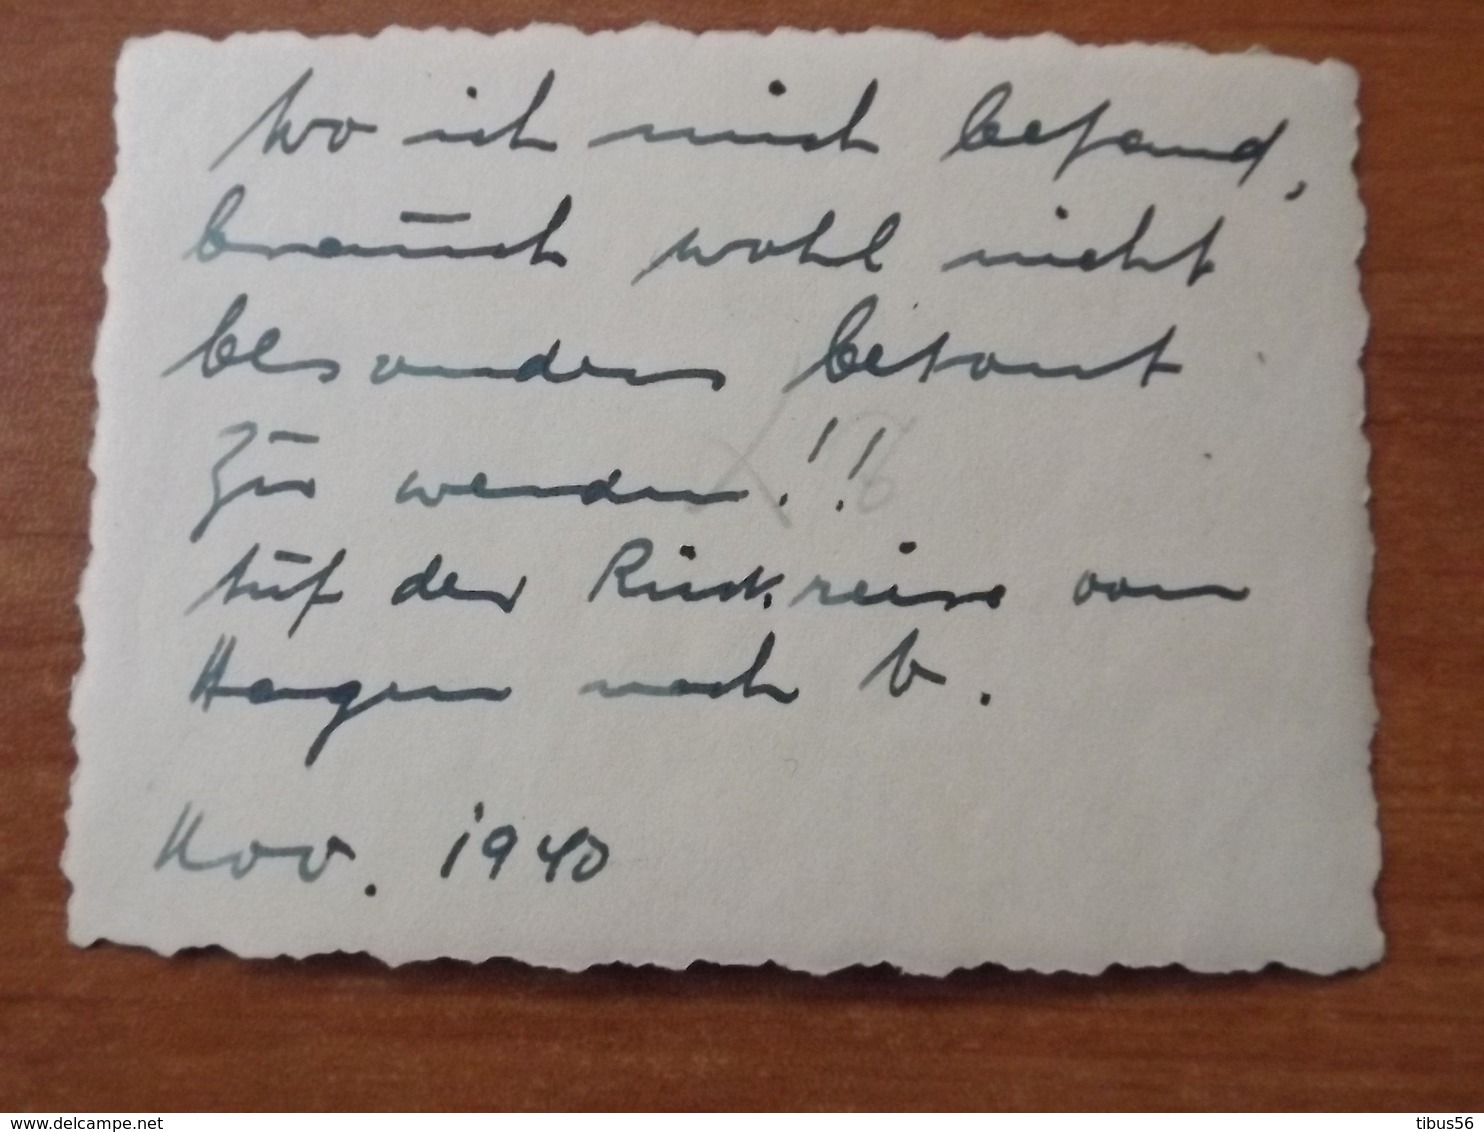 Wo ich mich befand,
brauch wohl nicht
besonders betont
zu werden!!!
Auf der Rückreise von
Hagen nach b.
Nov. 1940
www.delcampe.net
tibus56